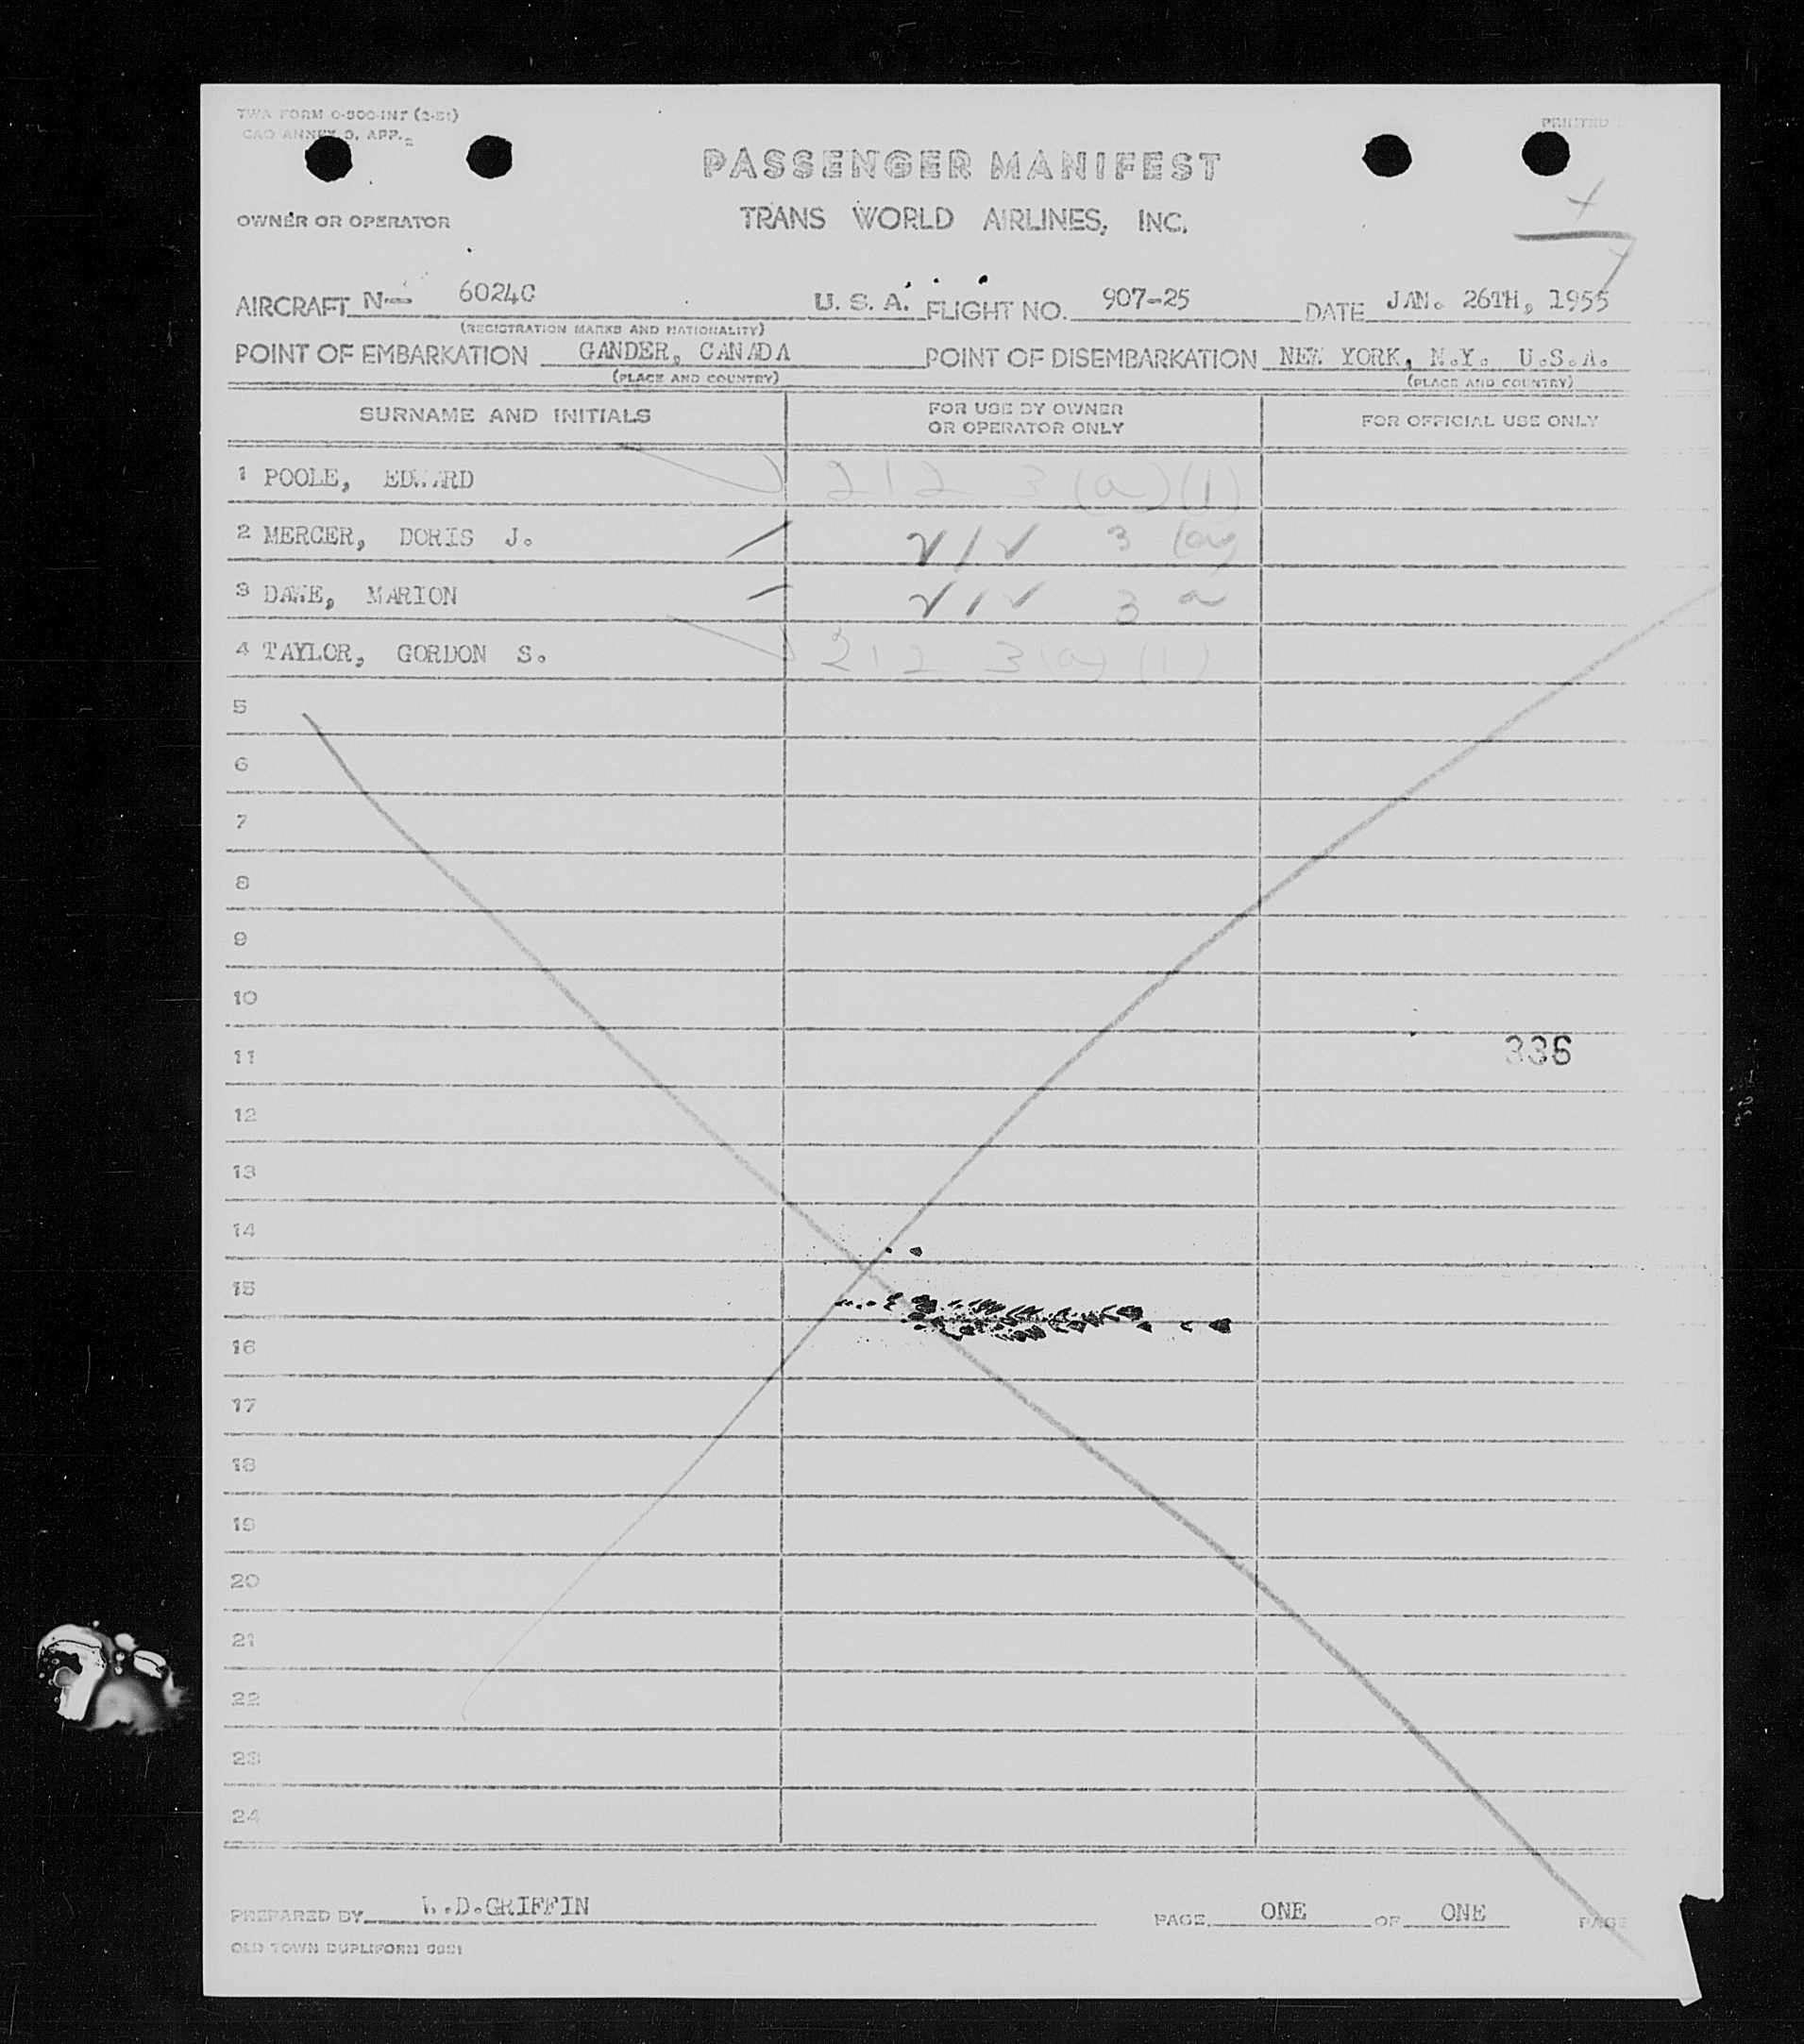 TWA FORM O-300-INT (2-51)
ANNEX 9, APP. 2
PRINTED
PASSENGER MANIFEST
OWNER OR OPERATOR TRANS WORLD AIRLINES, INC.
AIRCRAFT N- 6024C U. S. A. FLIGHT NO. 907-25 DATE JAN. 26TH, 1955
(REGISTRATION MARKS AND NATIONALITY)
POINT OF EMBARKATION GANDER, CANADA POINT OF DISEMBARKATION NEW YORK, N.Y. U.S.A.
(PLACE AND COUNTRY) (PLACE AND COUNTRY)
SURNAME AND INITIALS FOR USE BY OWNER OR OPERATOR ONLY FOR OFFICIAL USE ONLY
1 POOLE, EDWARD 212 3 (a) (1)
2 MERCER, DORIS J. 212 3 (a)
3 DAWE, MARION 212 3 a
4 TAYLOR, GORDON S. 212 3 (a) (1)
5
6
7
8
9
10
11 336
12
13
14
15
16
17
18
19
20
21
22
23
24
PREPARED BY W.D.GRIFFIN PAGE ONE OF ONE PAGE
OLD TOWN DUPLIFORM